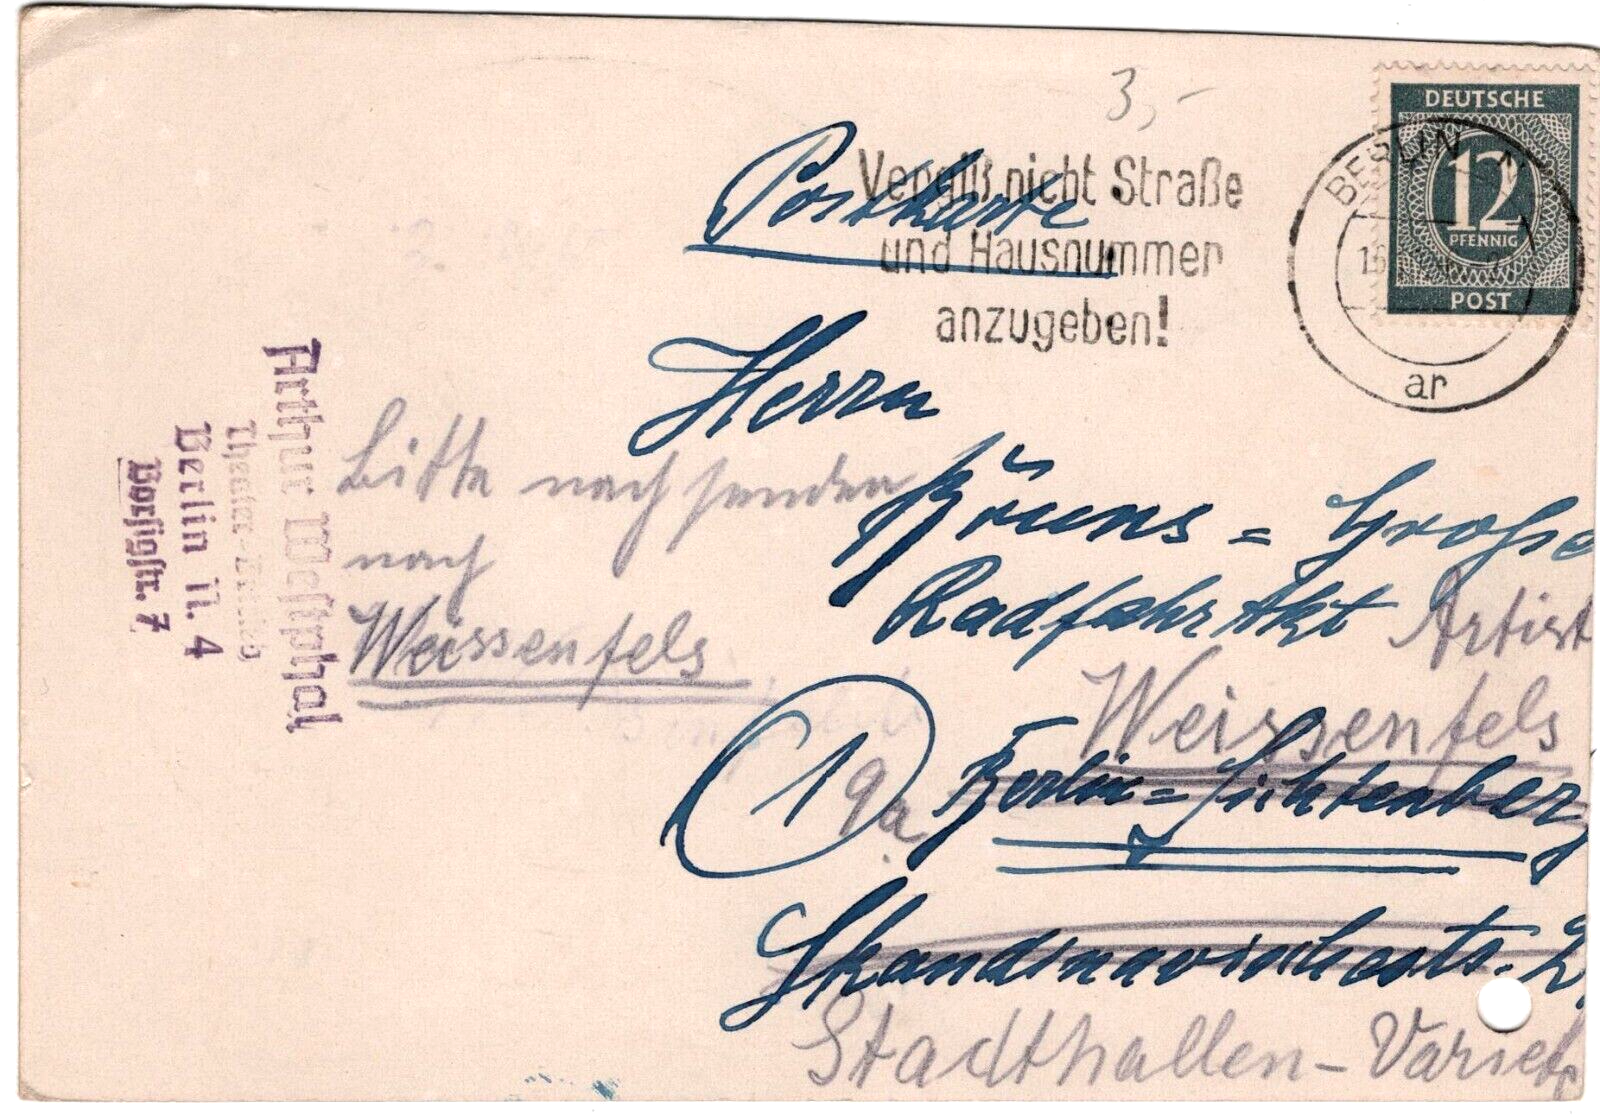 3,-
DEUTSCHE
12
PFENNIG
POST
BERLIN N
ar
Vergiß nicht Straße
und Hausnummer
anzugeben!
Postkarte
Herrn
Bruns = Große
Radfahr Akt
Artist
Weissenfels
1
9a
Berlin = Lichtenberg
Stadthallen - Variete
Bitte nachsenden
nach
Weissenfels
Arthur Westphal
Berlin N. 4
Borsigstr. 7